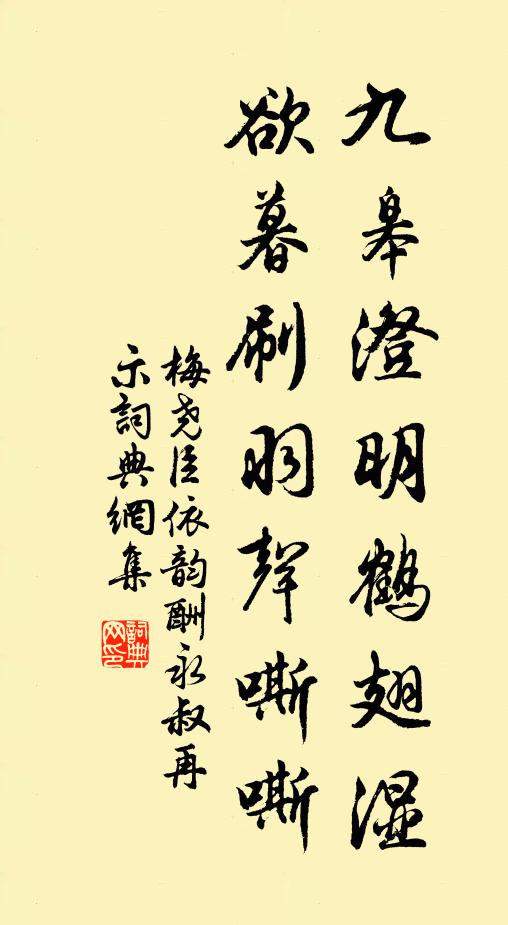 九皋澄明鶴翅湿
欲暮刷羽聲嘶嘶
梅尧臣依韵酬永叔再
示詞典網集
詞典
网印